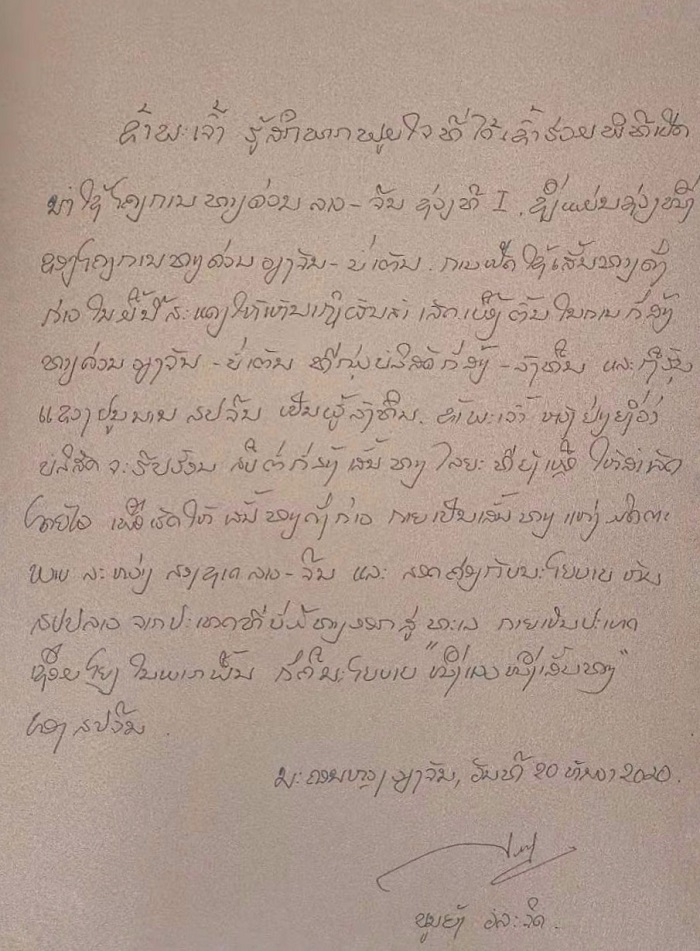 ຂ້າພະເຈົ້າ ຮູ້ສຶກພາກພູມໃຈ ທີ່ໄດ້ເຂົ້າຮ່ວມ ພິທີເປີດ
ນຳໃຊ້ໂຄງການ ທາງດ່ວນ ລາວ-ຈີນ ຊ່ວງທີ I, ຊຶ່ງແມ່ນຊ່ວງໜຶ່ງ
ຂອງໂຄງການທາງດ່ວນ ວຽງຈັນ-ບໍ່ເຕັນ. ການເປີດໃຊ້ເສັ້ນທາງດັ່ງ
ກ່າວ ໃນມື້ນີ້ ສະແດງໃຫ້ເຫັນເຖິງຜົນສຳເລັດເບື້ອງຕົ້ນ ໃນການກໍ່ສ້າງ
ທາງດ່ວນ ວຽງຈັນ-ບໍ່ເຕັນ ທີ່ກຸ່ມບໍລິສັດກໍ່ສ້າງ-ລົງທຶນ ແລະ
ແຂວງຢູນນານ ສປຈີນ ເປັນຜູ້ລົງທຶນ. ຂ້າພະເຈົ້າ ຫວັງຢ່າງຍິ່ງວ່າ
ບໍລິສັດ ຈະຮີບຮ້ອນ ສືບຕໍ່ກໍ່ສ້າງ ເສັ້ນທາງ ໄລຍະ ທີ່ຍັງເຫຼືອ ໃຫ້ສຳເລັດ
ໂດຍໄວ ເພື່ອເຮັດໃຫ້ ເສັ້ນທາງດັ່ງກ່າວ ກາຍເປັນເສັ້ນທາງ ແຫ່ງ ມິດຕະ
ພາບ ລະຫວ່າງ ສອງຊາດ ລາວ-ຈີນ ແລະ ສອດຄ່ອງກັບນະໂຍບາຍ ຫັນ
ສປປລາວ ຈາກປະເທດທີ່ບໍ່ມີທາງອອກສູ່ ທະເລ ກາຍເປັນປະເທດ
ເຊື່ອມໂຍງ ໃນພາກພື້ນ ກໍ່ຄືນະໂຍບາຍ "ໜຶ່ງແລວ ໜຶ່ງເສັ້ນທາງ"
ຂອງ ສປຈີນ.
ນະຄອນຫຼວງວຽງຈັນ, ວັນທີ 20 ທັນວາ 2020.
ບຸນຍັງ ວໍລະຈິດ.